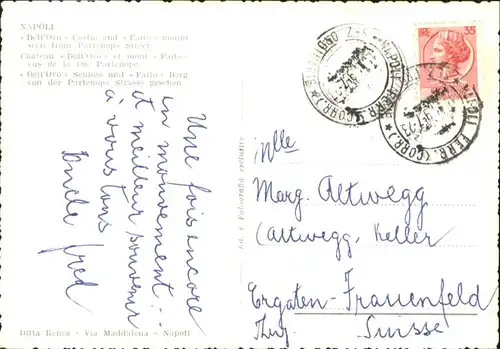 NAPOLI
« Dell'Ovo » Castle and « Faito » mount
seen from Partenope Street.
Château « Dell'Ovo » et mont « Faito »
vus de la rue Partenope.
« Dell'Ovo » Schloss und « Faito » Berg
von der Partenope Strasse gesehen.
Une fois encore
en mouvement!..
et meilleur souvenir
à vous tous
Oncle Fred
Ditta Renza - Via Maddalena - Napoli
IRE 35
NAPOLI FERR. (CORR.)
Mlle
Marg. Altwegg
(Altwegg, Keller
Ergaten-Frauenfeld
Thurg. Suisse